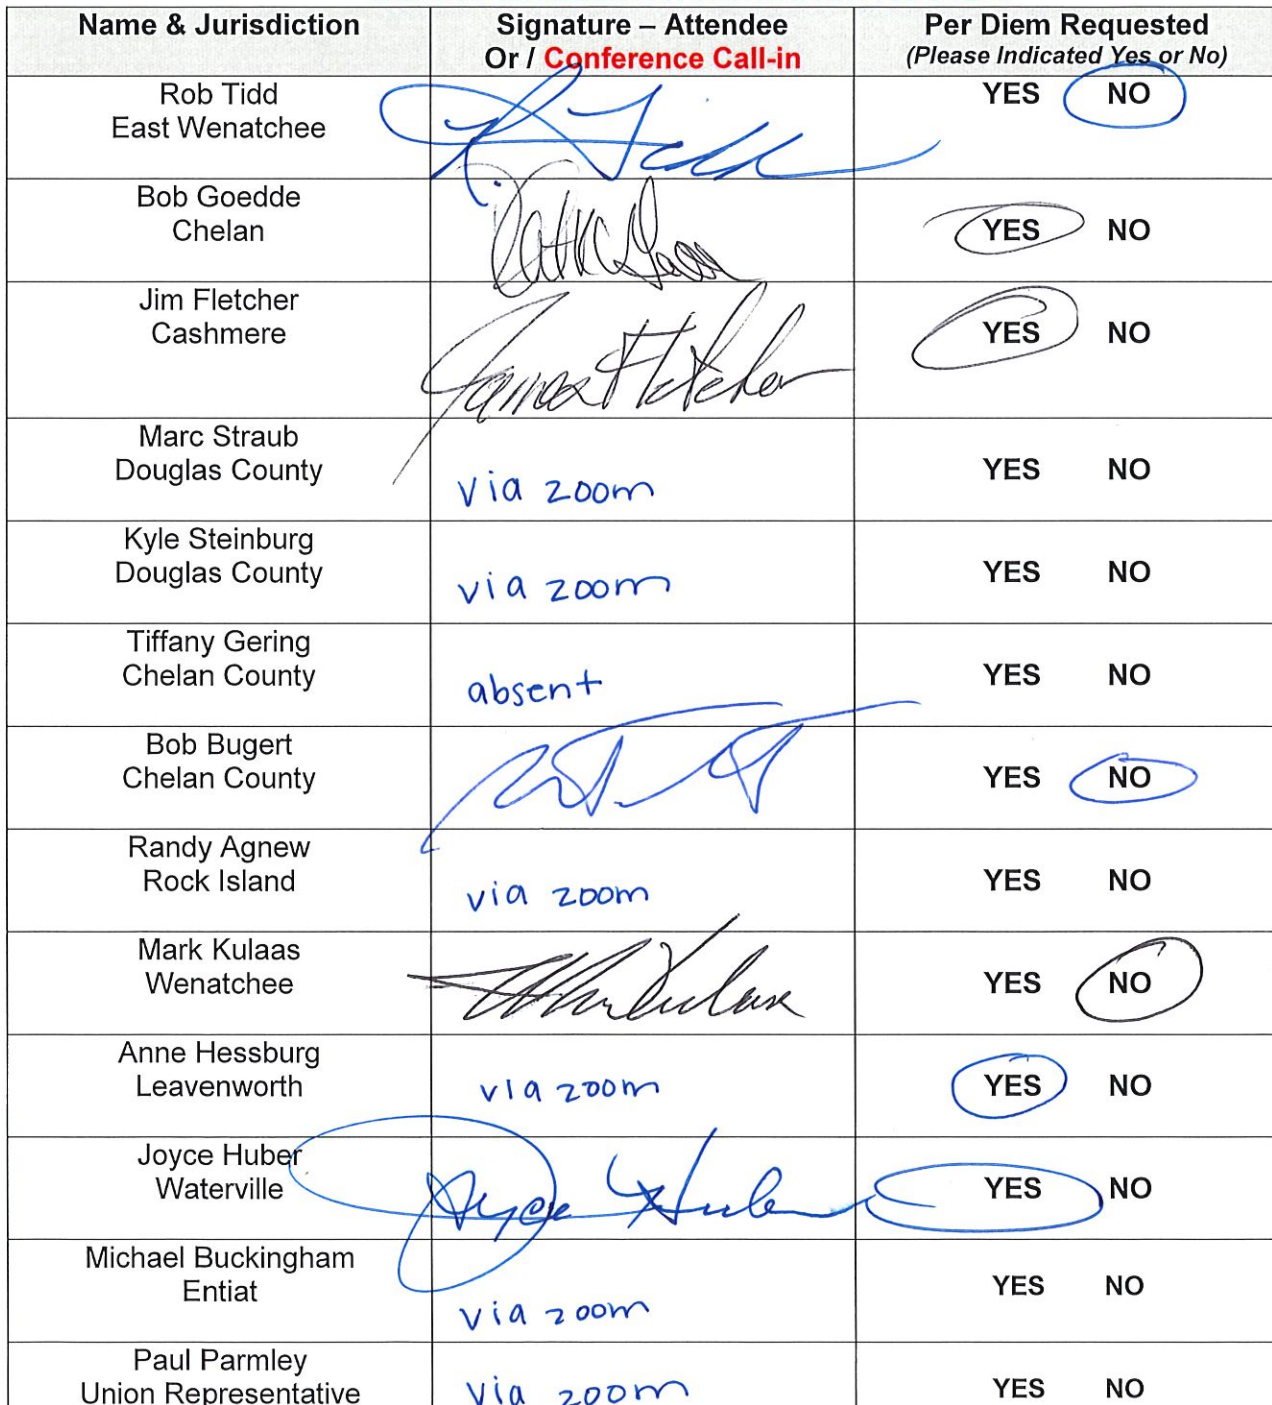 Name & Jurisdiction
Signature – Attendee
Or / Conference Call-in
Per Diem Requested
(Please Indicated Yes or No)
Rob Tidd
East Wenatchee
R Tidd
YES NO
Bob Goedde
Chelan
YES NO
Jim Fletcher
Cashmere
James Fletcher
YES NO
Marc Straub
Douglas County
via zoom
YES NO
Kyle Steinburg
Douglas County
via zoom
YES NO
Tiffany Gering
Chelan County
absent
YES NO
Bob Bugert
Chelan County
YES NO
Randy Agnew
Rock Island
via zoom
YES NO
Mark Kulaas
Wenatchee
YES NO
Anne Hessburg
Leavenworth
via zoom
YES NO
Joyce Huber
Waterville
Joyce Huber
YES NO
Michael Buckingham
Entiat
via zoom
YES NO
Paul Parmley
Union Representative
via zoom
YES NO